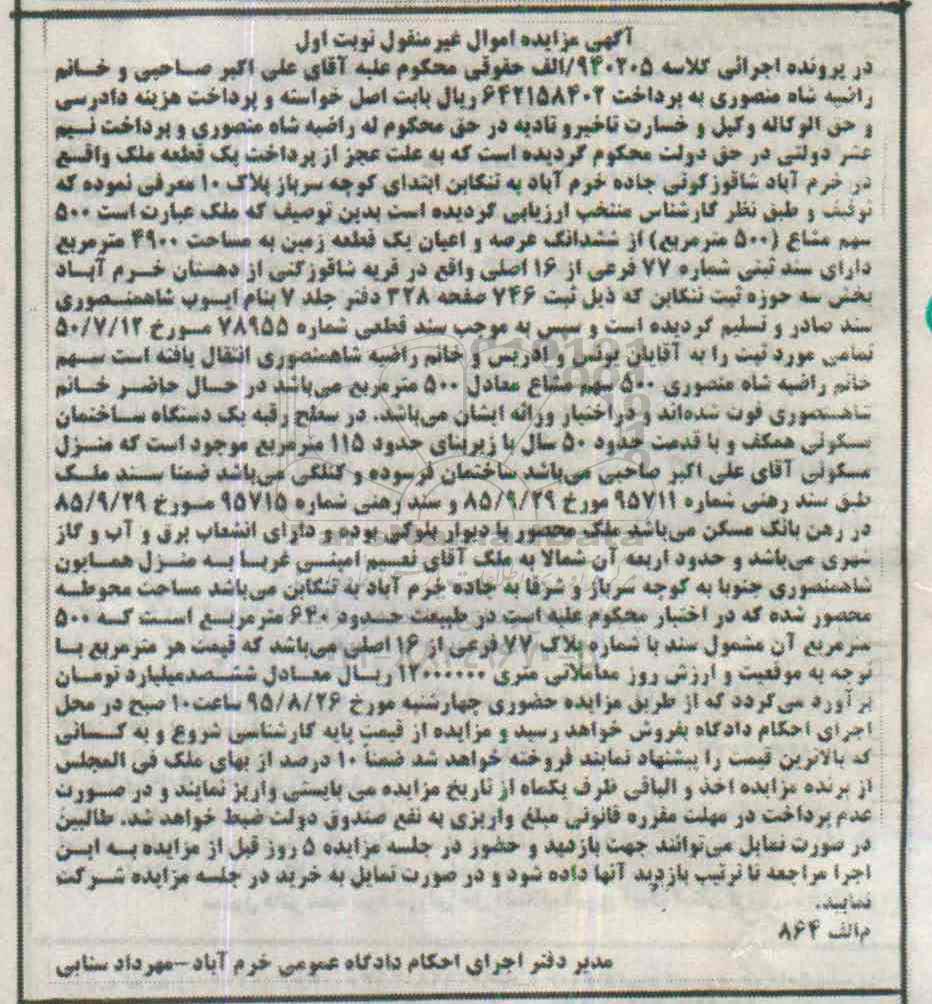 آگهی مزایده اموال غیر منقول نوبت اول
در پرونده اجرائی کلاسه ۹۴۰۲۰۵/الف حقوقی محکوم علیه آقای علی اکبر صاحبی و خانم
راضیه شاه منصوری به پرداخت ۶۴۲۱۵۸۴۰۲ ریال بابت اصل خواسته و پرداخت هزینه دادرسی
و حق الوکاله وکیل و خسارت تاخیر و تادیه در حق محکوم له راضیه شاه منصوری و پرداخت نیم
عشر دولتی در حق دولت محکوم گردیده است که به علت عجز از پرداخت یک قطعه ملک واقع
در خرم آباد شاقوزکوتی جاده خرم آباد به تنکابن ابتدای کوچه سرباز پلاک ۱۰ معرفی نموده که
توقیف و طبق نظر کارشناس منتخب ارزیابی گردیده است بدین توصیف که ملک عبارت است ۵۰۰
سهم مشاع (۵۰۰ مترمربع) از ششدانگ عرصه و اعیان یک قطعه زمین به مساحت ۴۹۰۰ مترمربع
دارای سند ثبتی شماره ۷۷ فرعی از ۱۶ اصلی واقع در قریه شاقوزکتی از دهستان خرم آباد
بخش سه حوزه ثبت تنکابن که ذیل ثبت ۷۴۶ صفحه ۳۲۸ دفتر جلد ۷ بنام ایوب شاهمنصوری
سند صادر و تسلیم گردیده است و سپس به موجب سند قطعی شماره ۷۸۹۵۵ مورخ ۵۰/۷/۱۲
تمامی مورد ثبت را به آقایان یونس و ادریس و خانم راضیه شاهمنصوری انتقال یافته است سهم
خانم راضیه شاه منصوری ۵۰۰ سهم مشاع معادل ۵۰۰ مترمربع می‌باشد در حال حاضر خانم
شاهمنصوری فوت شده‌اند و در اختیار ورثه ایشان می‌باشد. در سطح رقبه یک دستگاه ساختمان
مسکونی همکف و با قدمت حدود ۵۰ سال با زیربنای حدود ۱۱۵ مترمربع موجود است که منزل
مسکونی آقای علی اکبر صاحبی می‌باشد ساختمان فرسوده و کلنگی می‌باشد ضمنا سند ملک
طبق سند رهنی شماره ۹۵۷۱۱ مورخ ۸۵/۹/۲۹ و سند رهنی شماره ۹۵۷۱۵ مورخ ۸۵/۹/۲۹
در رهن بانک مسکن می‌باشد ملک محصور با دیوار بلوکی بوده و دارای انشعاب برق و آب و گاز
شهری می‌باشد و حدود اربعه آن شمالا به ملک آقای نعیم امینی غربا به منزل همایون
شاهمنصوری جنوبا به کوچه سرباز و شرقا به جاده خرم آباد به تنکابن می‌باشد مساحت محوطه
محصور شده که در اختیار محکوم علیه است در طبیعت حدود ۶۴۰ مترمربع است که ۵۰۰
مترمربع آن مشمول سند با شماره پلاک ۷۷ فرعی از ۱۶ اصلی می‌باشد که قیمت هر مترمربع با
توجه به موقعیت و ارزش روز معاملاتی متری ۱۲۰۰۰۰۰۰ ریال معادل ششصدمیلیارد تومان
برآورد می‌گردد که از طریق مزایده حضوری چهارشنبه مورخ ۹۵/۸/۲۶ ساعت ۱۰ صبح در محل
اجرای احکام دادگاه بفروش خواهد رسید و مزایده از قیمت پایه کارشناسی شروع و به کسانی
که بالاترین قیمت را پیشنهاد نمایند فروخته خواهد شد ضمناً ۱۰ درصد از بهای ملک فی المجلس
از برنده مزایده اخذ و الباقی ظرف یکماه از تاریخ مزایده می بایستی واریز نمایند و در صورت
عدم پرداخت در مهلت مقرره قانونی مبلغ واریزی به نفع صندوق دولت ضبط خواهد شد. طالبین
در صورت تمایل می‌توانند جهت بازدید و حضور در جلسه مزایده ۵ روز قبل از مزایده به این
اجرا مراجعه تا ترتیب بازدید آنها داده شود و در صورت تمایل به خرید در جلسه مزایده شرکت
نمایید.
م‌الف ۸۶۴
مدیر دفتر اجرای احکام دادگاه عمومی خرم آباد -مهرداد سنایی